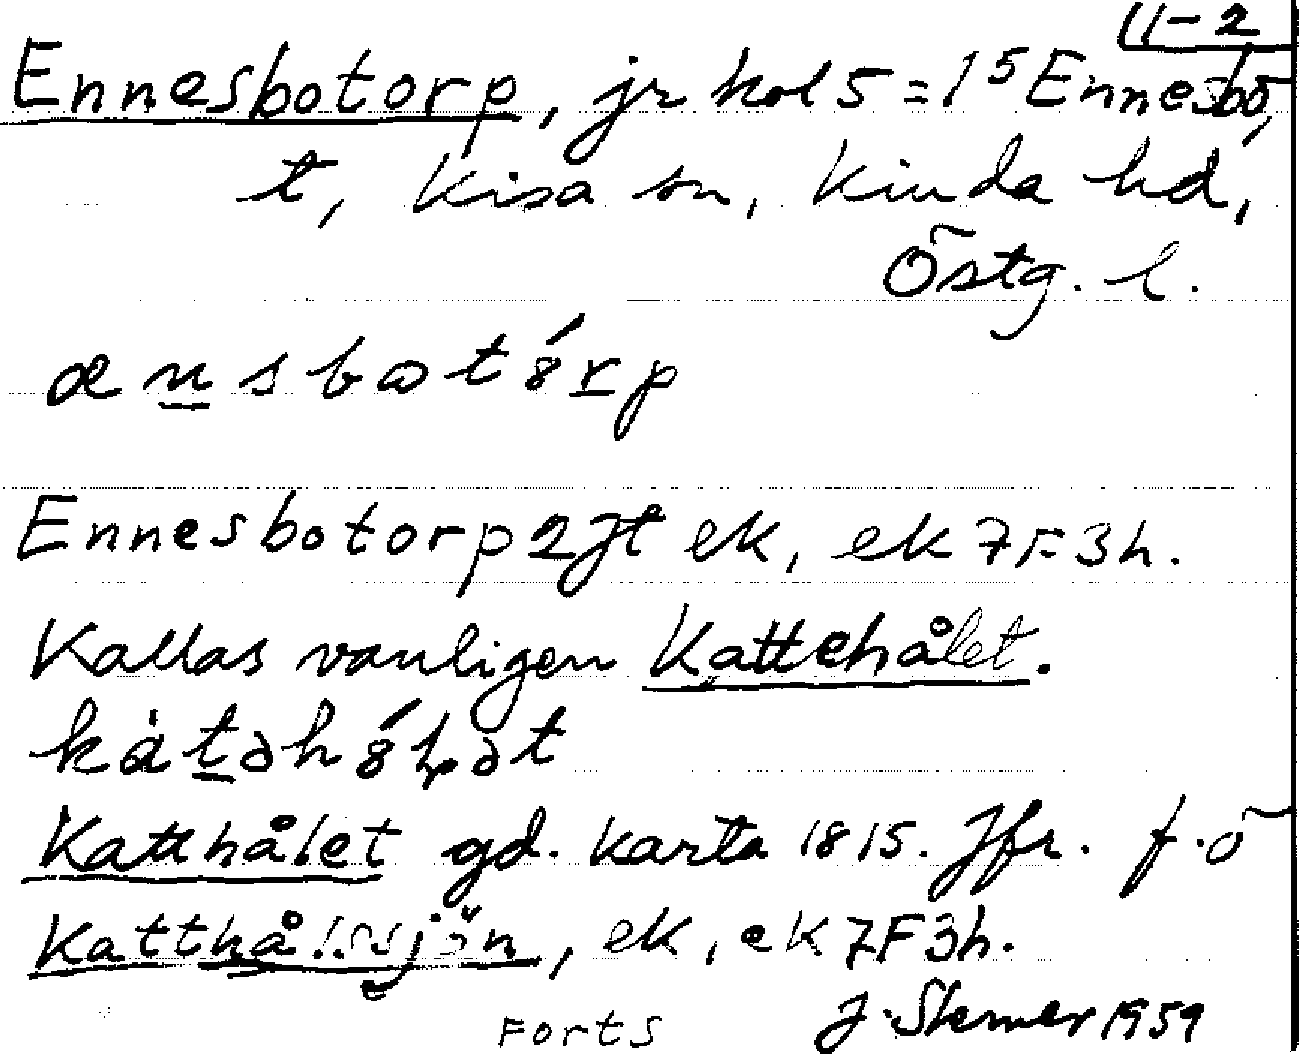 11-2
Ennesbotorp, jr kol 5 = 1⁵ Ennesbo,
t, Kisa sn, Kinda hd,
Östg. l.
Ennesbotorp 2Jt ek, ek 7F3h.
Kallas vanligen Kattehålet.
Katthålet gd. karta 1815. Jfr. f.ö
Katthålssjön, ek, ek 7F3h.
Forts J. Sterner 1959